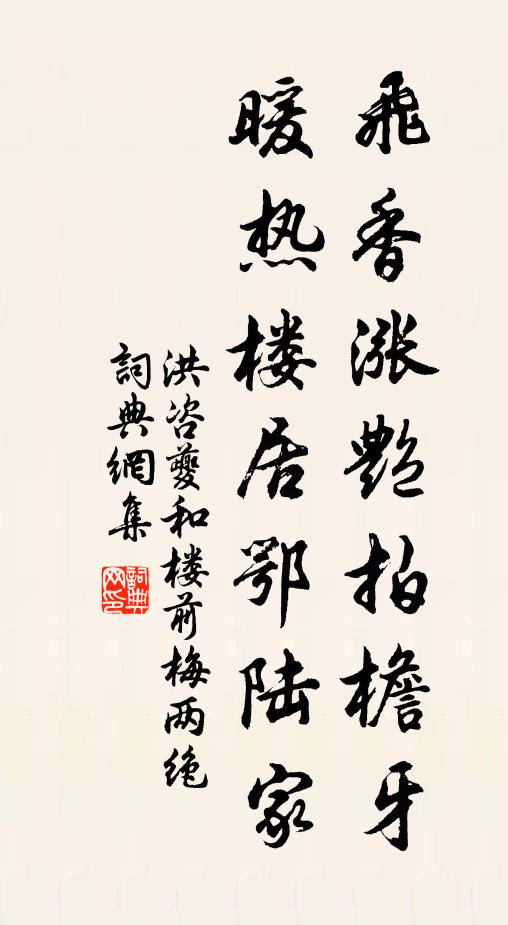 飛香漲艷拍檐牙
暖热楼居鄂陆家
洪咨夔和楼前梅两绝
詞典網集
詞典网印